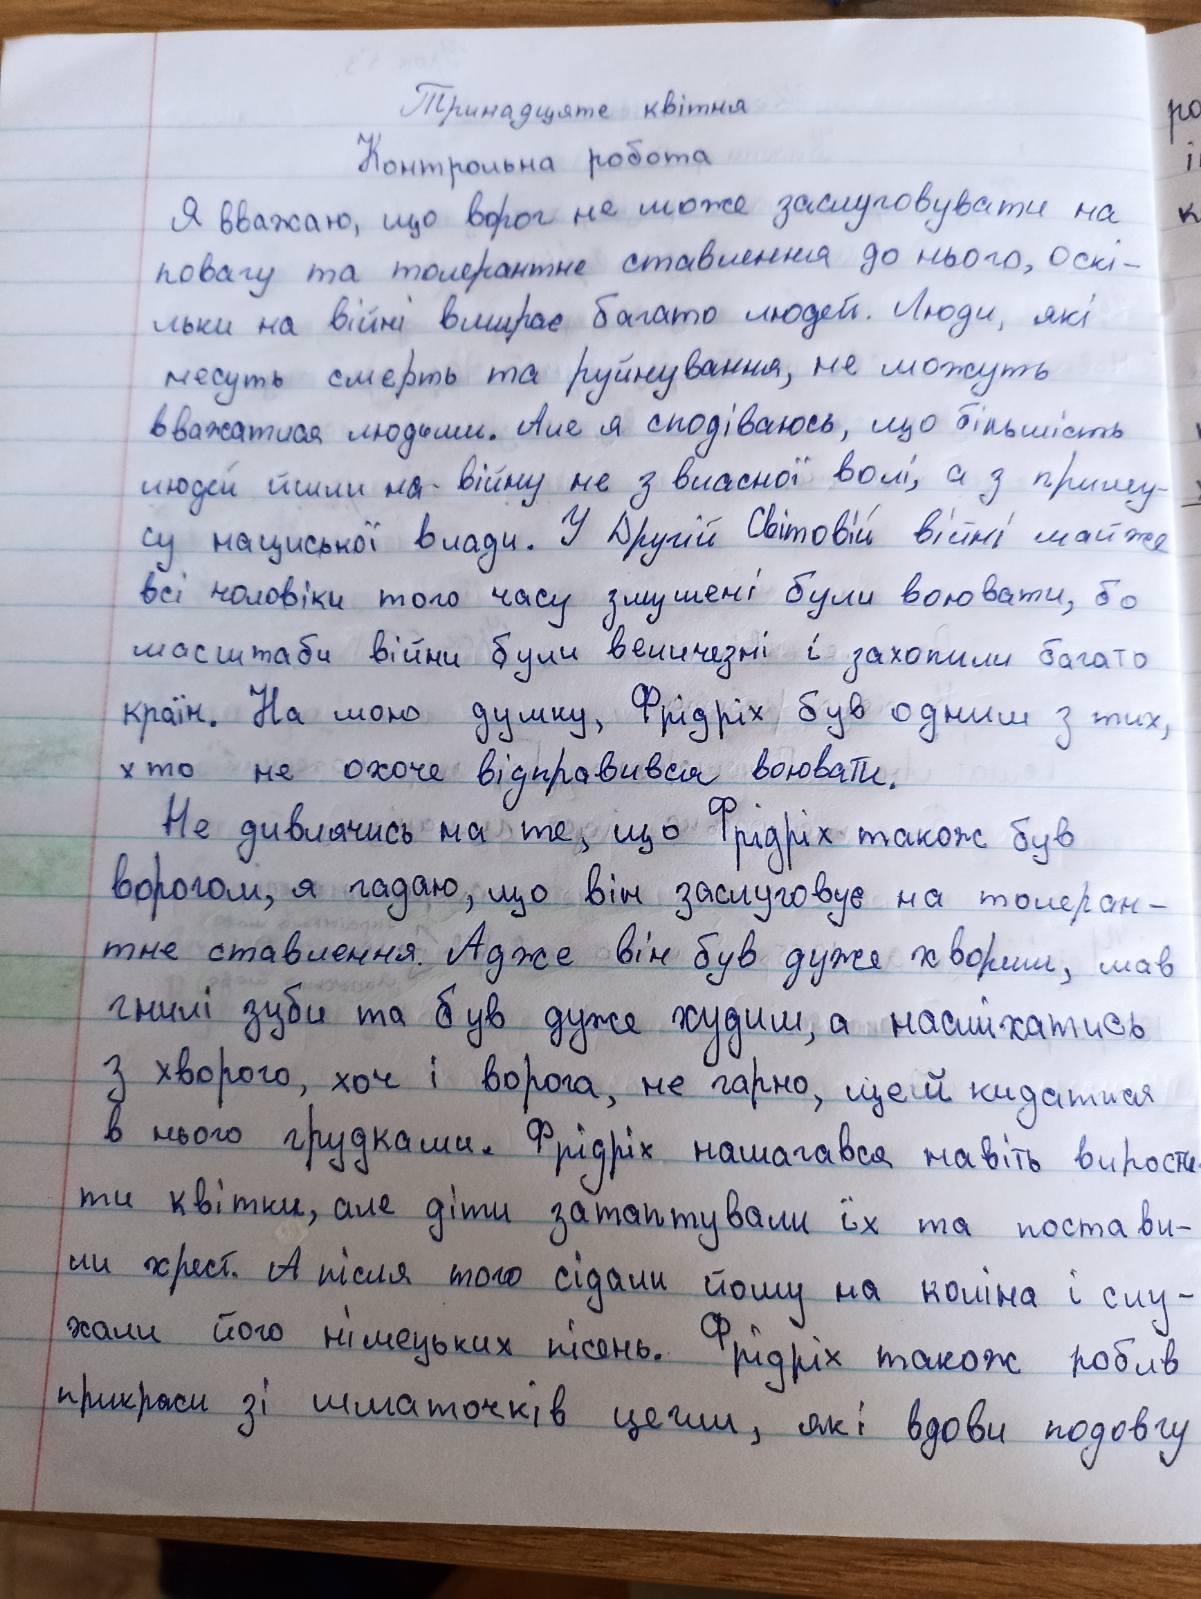 Тринадцяте квітня
Контрольна робота
Я вважаю, що ворог не може заслуговувати на
повагу та толерантне ставлення до нього, оскі-
льки на війні вмирає багато людей. Люди, які
несуть смерть та руйнування, не можуть
вважатися людьми. Але я сподіваюсь, що більшість
людей йшли на війну не з власної волі, а з приму-
су нациської влади. У Другій Світовій війні майже
всі чоловіки того часу змушені були воювати, бо
масштаби війни були величезні і захопили багато
країн. На мою думку, Фрідріх був одним з тих,
хто не охоче відправився воювати.
Не дивлячись на те, що Фрідріх також був
ворогом, я гадаю, що він заслуговує на толеран-
тне ставлення. Адже він був дуже хворим, мав
гнилі зуби та був дуже худим, а насміхатись
з хворого, хоч і ворога, не гарно, ще й кидатися
в нього грудками. Фрідріх намагався навіть вирости-
ти квітки, але діти затаптували їх та постави-
ли хрест. А після того сідали йому на коліна і слу-
хали його німецьких пісень. Фрідріх також робив
прикраси зі шматочків цегли, які вдови подовгу
ро
к